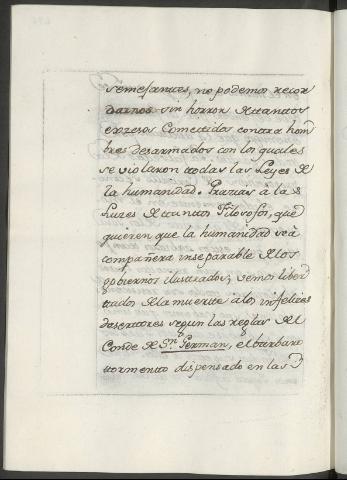 semejantes, no podemos recor
darnos sin horror de tantos
excesos Cometidos contra hom
bres desarmados con los quales
se violaron todas las Leyes de
la humanidad. Gracias à las
Luzes de tantos Filosofos, que
quieren que la humanidad sea
compañera inseparable de los
gobiernos ilustrados, vemos liber
tados de la muerte à los infelices
desertores segun las reglas del
Conde de Sn. German, el barbaro
tormento dispensado en las